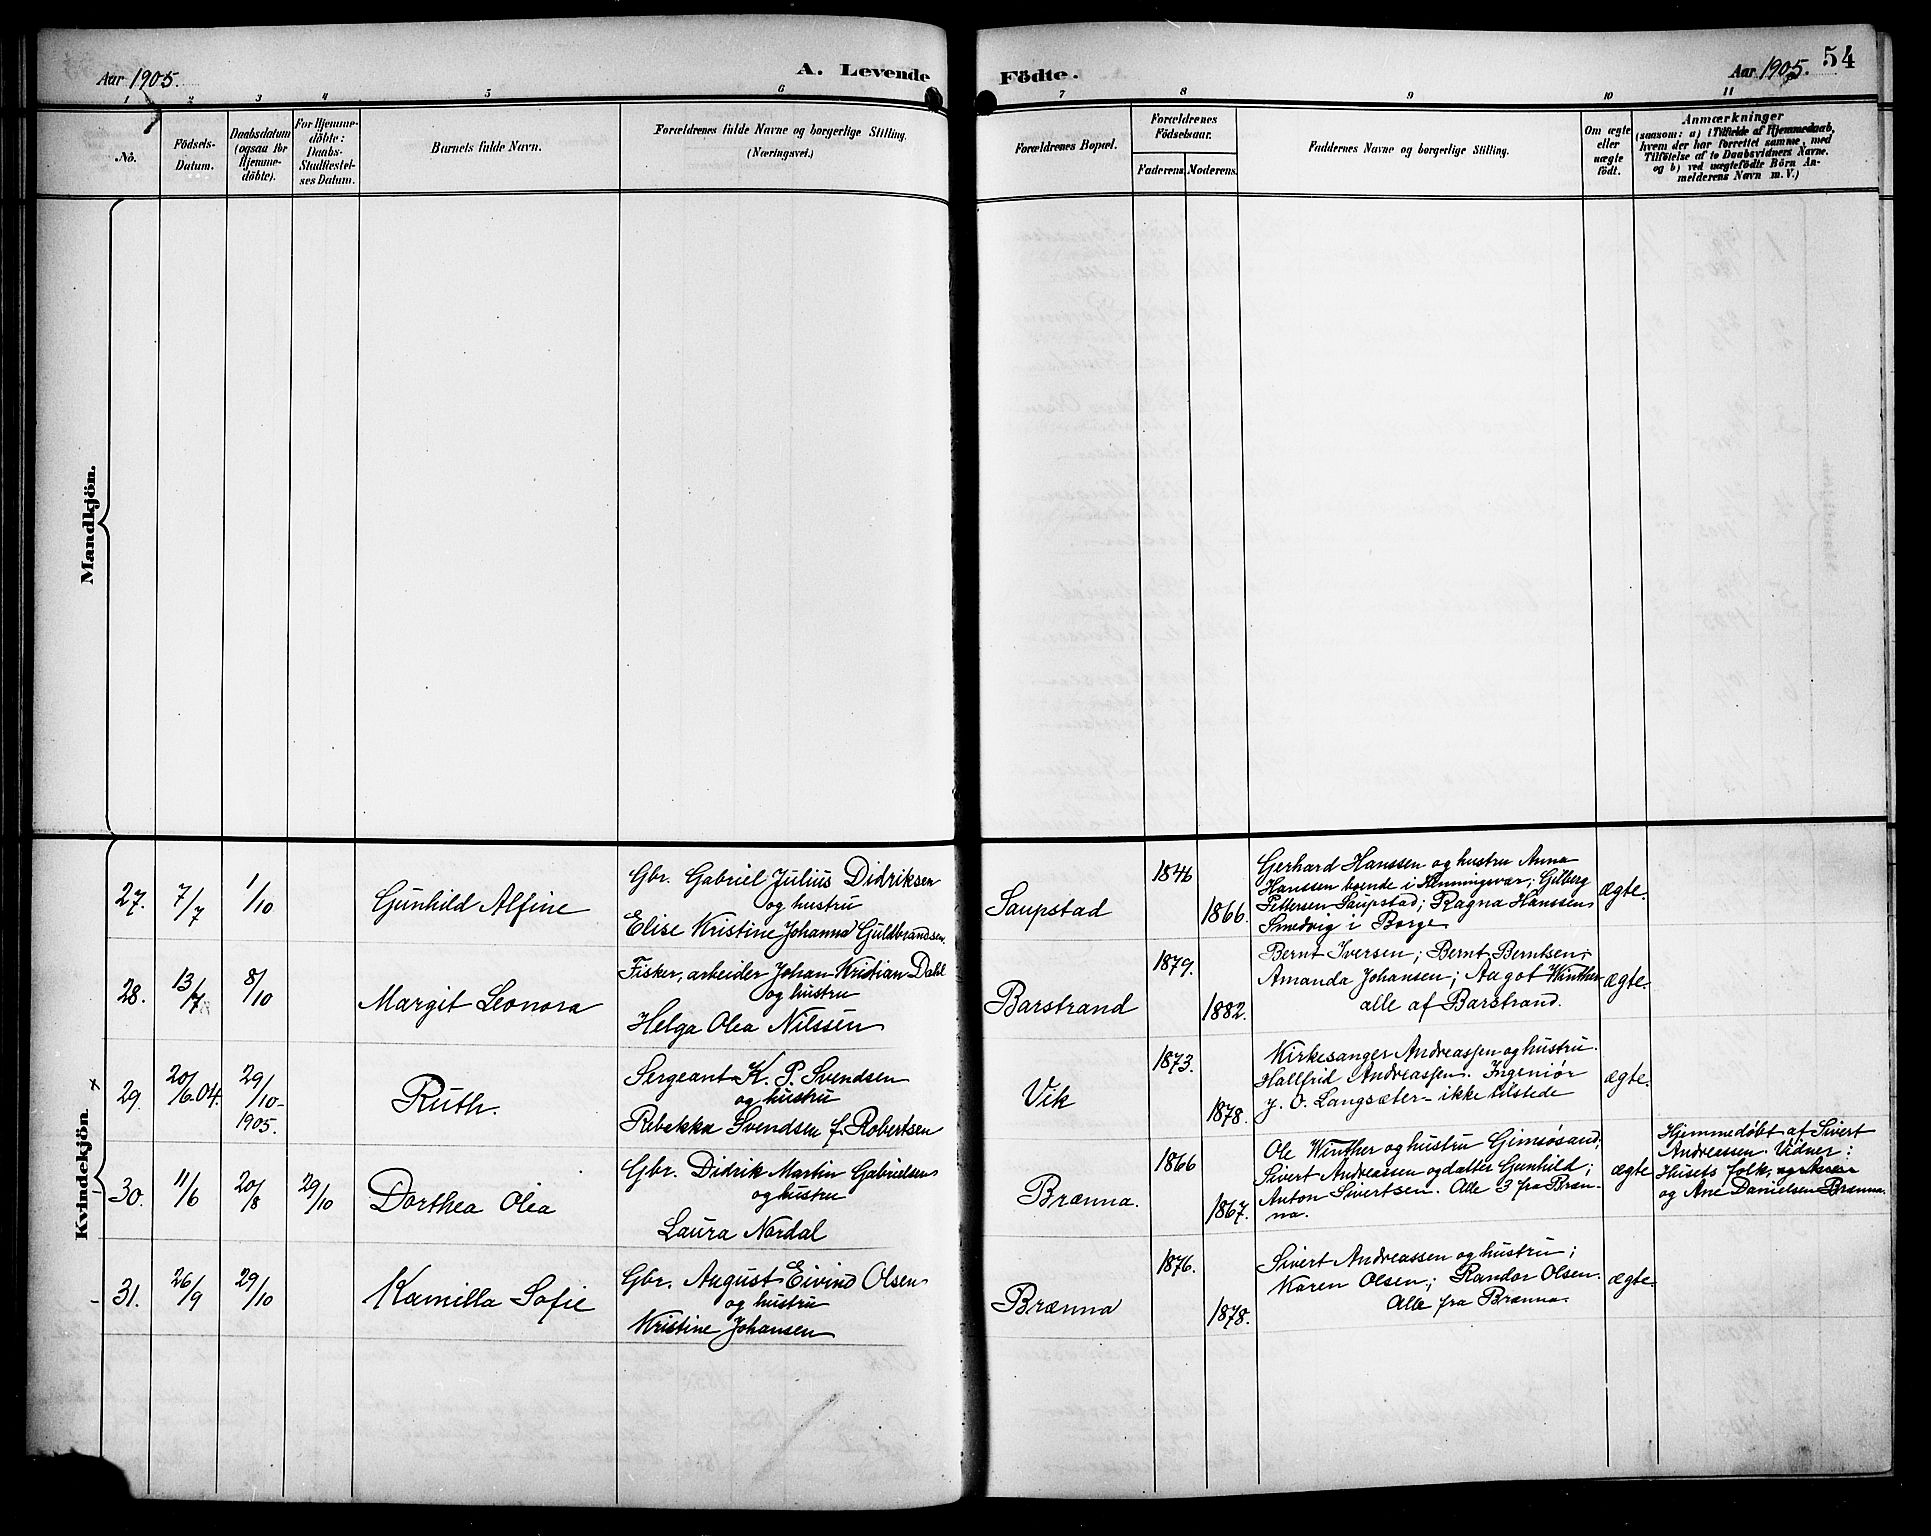 Aar 1905.
A. Levende
Födte.
Aar 1905.
54
1 2 3 4 5 6
7 8 9 10 11
No.
Födsels-
Datum.
Daabsdatum
(ogsaa for
Hjemme-
döbte).
For Hjemme-
döbte:
Daabs-
Stadfæstel-
ses Datum.
Barnets fulde Navn.
Forældrenes fulde Navne og borgerlige Stilling.
(Næringsvei.)
Forældrenes Bopæl.
Forældrenes
Födselsaar.
Faderens. Moderens.
Faddernes Navne og borgerlige Stilling.
Om ægte
eller
uægte
født.
Anmærkninger
(saasom: a) i Tilfælde af Hjemmedaab,
hvem der har forrettet samme, med
Tilföielse af to Daabsvidners Navne.
og b) ved uægtefödte Börn An-
melderens Navn m. V.)
Mandkjön.
Kvindekjön.
27. 7/7 1/10
Gunhild Alfine
Gbr. Gabriel Julius Didriksen
og hustru
Elise Kristine Johanna Guldbrandsen.
Saupstad
1846
1866.
Gerhard Hanssen og hustru Anna
Hanssen boende i Henningsvær; Gilberg
Pettersen Saupstad; Ragna Hanssen
Smedvig i Borge
ægte.
28. 13/7 8/10
Margit Leonora
Fisker, arbeider Johan Kristian Dahl
og hustru
Helga Olea Nilssen
Barstrand
1879.
1882.
Bernt Iversen; Bernt Berntsen;
Amanda Johansen; Aagot Winther
alle af Barstrand.
ægte.
29. 20/6 04. 29/10-
1905.
Ruth.
Sergeant K. P. Svendsen
og hustru
Rebekka Svendsen f. Robertsen
Vik
1873.
1878.
Kirkesanger Andreassen og hustru
Hallfrid Andreassen. Ingeniør
J. O. Langsæter - ikke tilstede
ægte.
30. 11/6 20/8 29/10
Dorthea Olea
Gbr. Didrik Martin Gabrielsen
og hustru
Laura Nordal
Brænna.
1866
1867.
Ole Winther og hustru Gimsøsand;
Sivert Andreassen og datter Gunhild;
Anton Sivertsen. Alle 3 fra Bræn-
na.
ægte
Hjemmedøbt af Sivert
Andreassen. Vidner:
Husets folk,
og Ane Danielsen Brænna.
31. 26/9 29/10
Kamilla Sofie
Gbr. August Eivind Olsen
og hustru
Kristine Johansen
Brænna
1876.
1878.
Sivert Andreassen og hustru;
Karen Olsen; Randor Olsen.
Alle fra Brænna.
ægte.